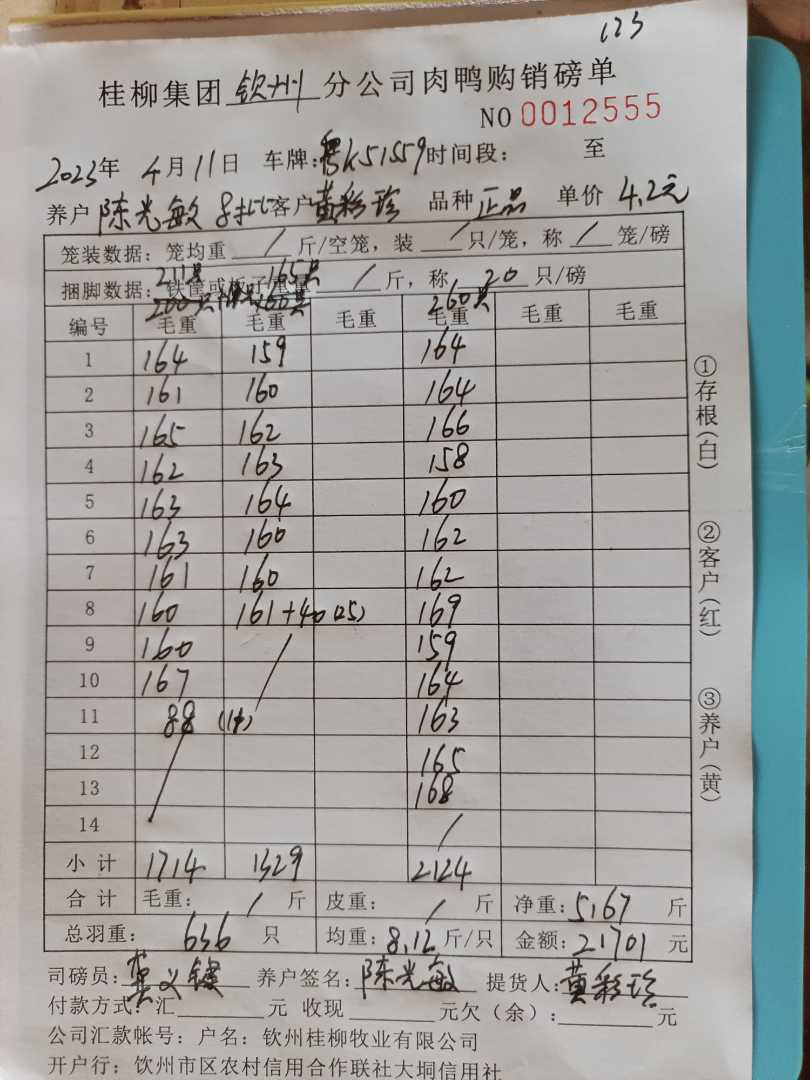 123
桂柳集团 钦州 分公司肉鸭购销磅单
NO 0012555
2023年 4月11日 车牌:粤K51559 时间段: 至
养户 陈光敏 8批 客户 黄彩珍 品种 正品 单价 4.2元
笼装数据: 笼均重 / 斤/空笼, 装 / 只/笼, 称 / 笼/磅
211只 165只
捆脚数据: 铁筐或板子重量 / 斤, 称 20 只/磅
200只 160只 260只
编号 毛重 毛重 毛重 毛重 毛重 毛重
1 164 159 164
2 161 160 164
3 165 162 166
4 162 163 158
5 163 164 160
6 163 160 162
7 161 160 162
8 160 161+40(5) 169
9 160 / 159
10 167 164
11 88 (11只) 163
12 / 165
13 168
14 /
小计 1714 1329 2124
合计 毛重: / 斤 皮重: / 斤 净重: 5167 斤
总羽重: 636 只 均重: 8.12 斤/只 金额: 21701 元
司磅员: 莫义键 养户签名: 陈光敏 提货人: 黄彩珍
付款方式: 汇 元 收现 元欠(余): 元
公司汇款帐号: 户名: 钦州桂柳牧业有限公司
开户行: 钦州市区农村信用合作联社大垌信用社
①存根(白)
②客户(红)
③养户(黄)